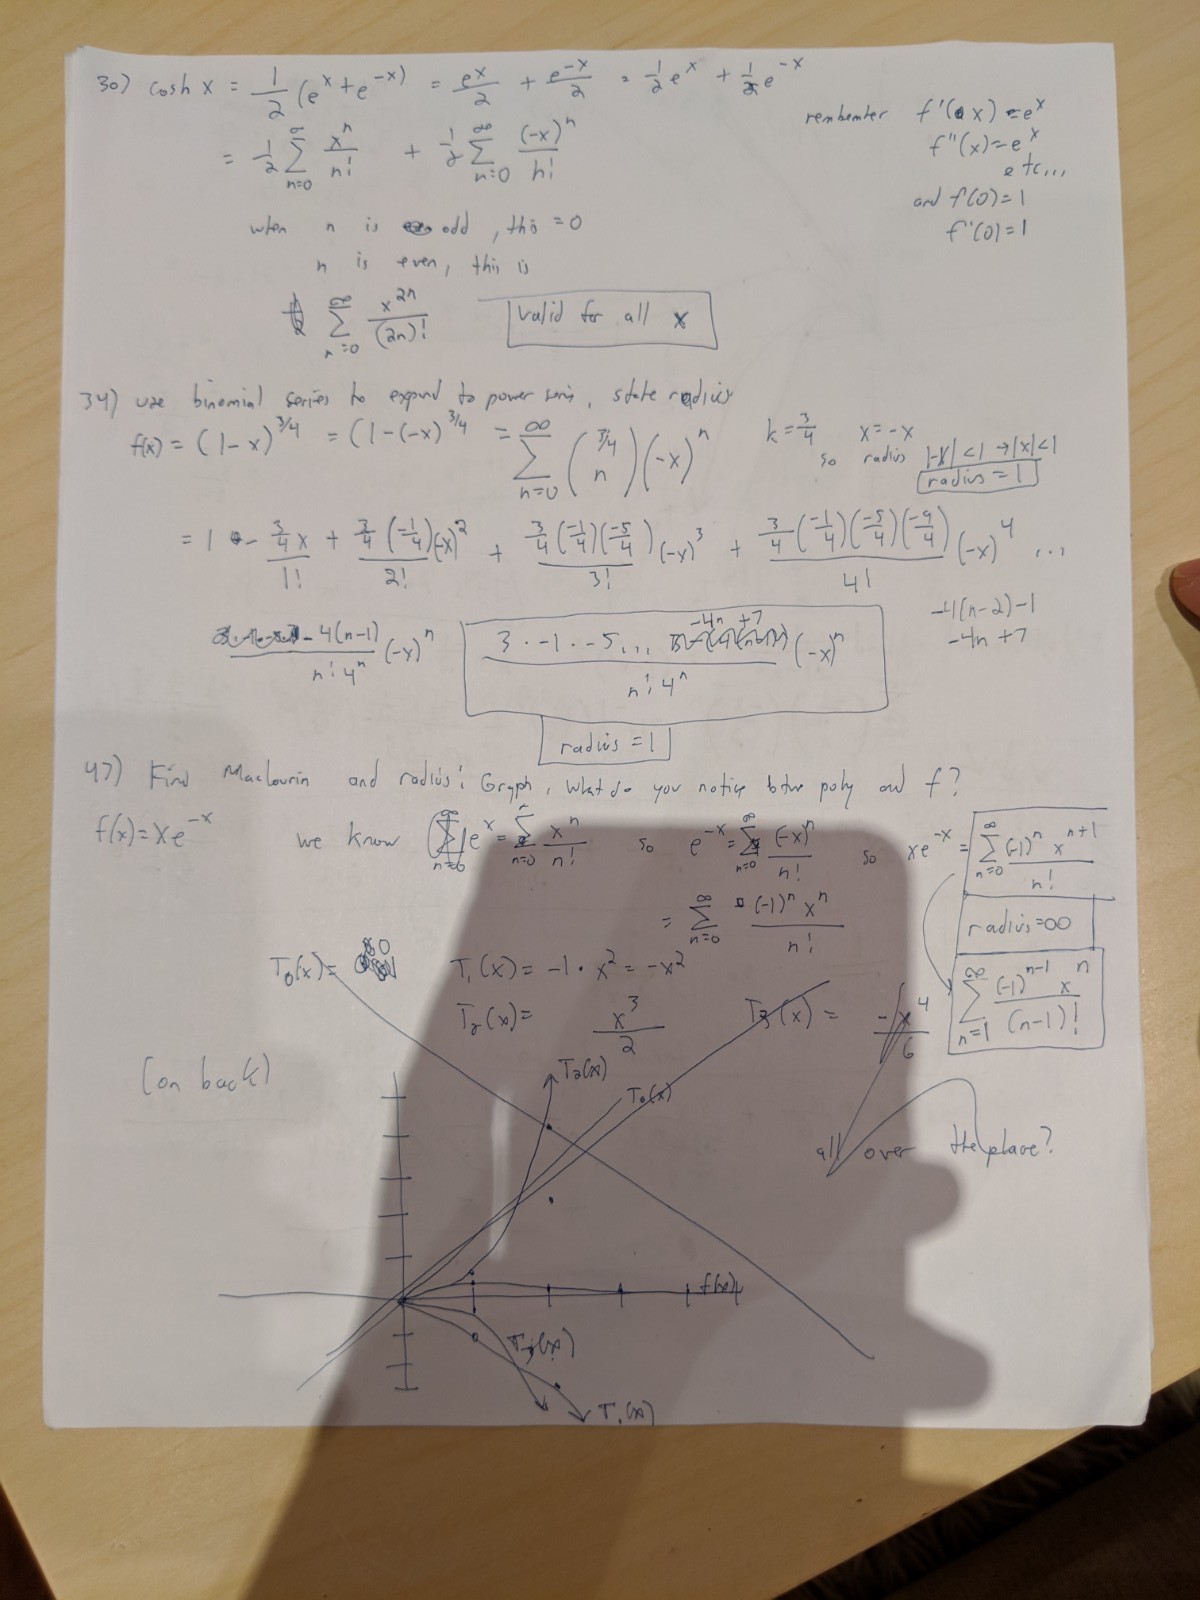 30) cosh x = 1/2 (e^x + e^-x) = e^x/2 + e^-x/2 = 1/2 e^x + 1/2 e^-x
remember f'(x) = e^x
f''(x) = e^x
etc...
and f(0) = 1
f'(0) = 1
= 1/2 ∑_{n=0}^{∞} x^n/n! + 1/2 ∑_{n=0}^{∞} (-x)^n/n!
when n is odd, this = 0
n is even, this is
∑_{n=0}^{∞} x^{2n}/(2n)! valid for all x
34) use binomial series to expand to power series, state radius
f(x) = (1-x)^{3/4} = (1-(-x)^{3/4} = ∑_{n=0}^{∞} (3/4 n)(-x)^n
k = 3/4 x = -x
so radius |-x| < 1 → |x| < 1
radius = 1
= 1 - 3/4 x/1! + 3/4(-1/4)(-x)^2/2! + 3/4(-1/4)(-5/4)(-x)^3/3! + 3/4(-1/4)(-5/4)(-9/4)/4! (-x)^4 ...
-4(n-2)-1
-4n+7
-4(n-1)/n! 4^n (-x)^n
3·-1·-5... -4n+7/n! 4^n (-x)^n
radius = 1
47) Find Maclaurin and radius; Graph, What do you notice btw poly and f?
f(x) = xe^-x we know e^x = ∑_{n=0} x^n/n! so e^-x = ∑_{n=0}^{∞} (-x)^n/n! so xe^-x = ∑_{n=0}^{∞} (-1)^n x^{n+1}/n!
= ∑_{n=0}^{∞} (-1)^n x^n/n!
radius = ∞
∑_{n=1}^{∞} (-1)^{n-1} x^n/(n-1)!
T₀(x) =
T₁(x) = -1 · x^2 = -x^2
T₂(x) = x^3/2
T₃(x) = -x^4/6
(on back)
T₂(x)
T₀(x)
all over the place?
f(x)
T₃(x)
T₁(x)